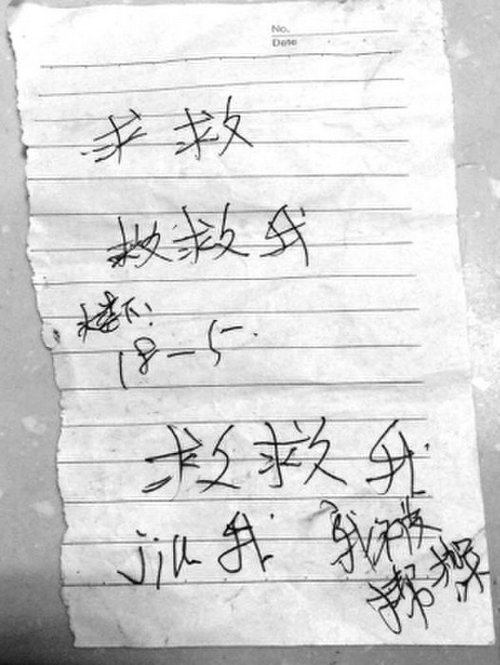 No.
Date
求救
救救我
楼下:
18-5.
救救我
jiu我 我被
绑架